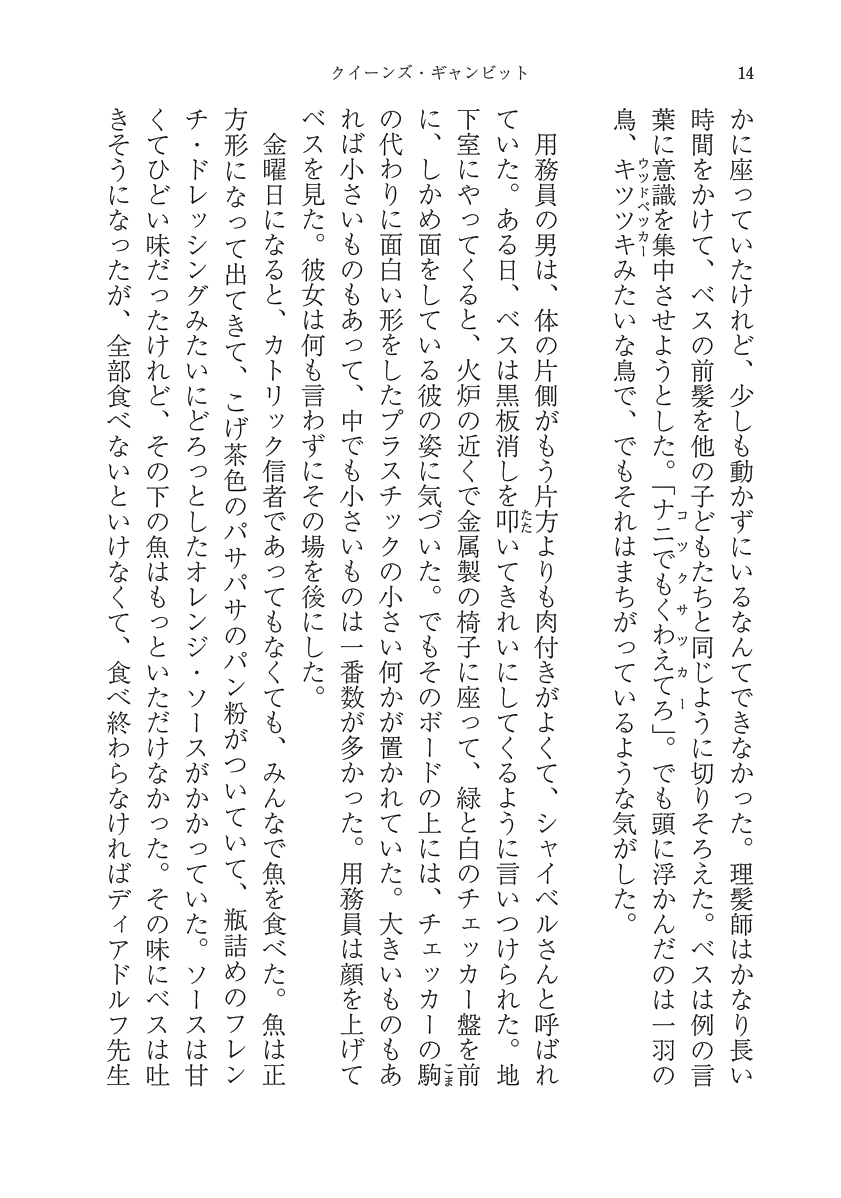 クイーンズ・ギャンビット
14
かに座っていたけれど、少しも動かずにいるなんてできなかった。理髪師はかなり長い
時間をかけて、ベスの前髪を他の子どもたちと同じように切りそろえた。ベスは例の言
葉に意識を集中させようとした。「ナニでもくわえてろ」。でも頭に浮かんだのは一羽の
コックサッカー
鳥、キツツキみたいな鳥で、でもそれはまちがっているような気がした。
ウッドペッカー
用務員の男は、体の片側がもう片方よりも肉付きがよくて、シャイベルさんと呼ばれ
ていた。ある日、ベスは黒板消しを叩いてきれいにしてくるように言いつけられた。地
たた
下室にやってくると、火炉の近くで金属製の椅子に座って、緑と白のチェッカー盤を前
に、しかめ面をしている彼の姿に気づいた。でもそのボードの上には、チェッカーの駒
こま
の代わりに面白い形をしたプラスチックの小さい何かが置かれていた。大きいものもあ
れば小さいものもあって、中でも小さいものは一番数が多かった。用務員は顔を上げて
ベスを見た。彼女は何も言わずにその場を後にした。
金曜日になると、カトリック信者であってもなくても、みんなで魚を食べた。魚は正
方形になって出てきて、こげ茶色のパサパサのパン粉がついていて、瓶詰めのフレン
チ・ドレッシングみたいにどろっとしたオレンジ・ソースがかかっていた。ソースは甘
くてひどい味だったけれど、その下の魚はもっといただけなかった。その味にベスは吐
きそうになったが、全部食べないといけなくて、食べ終わらなければディアドルフ先生